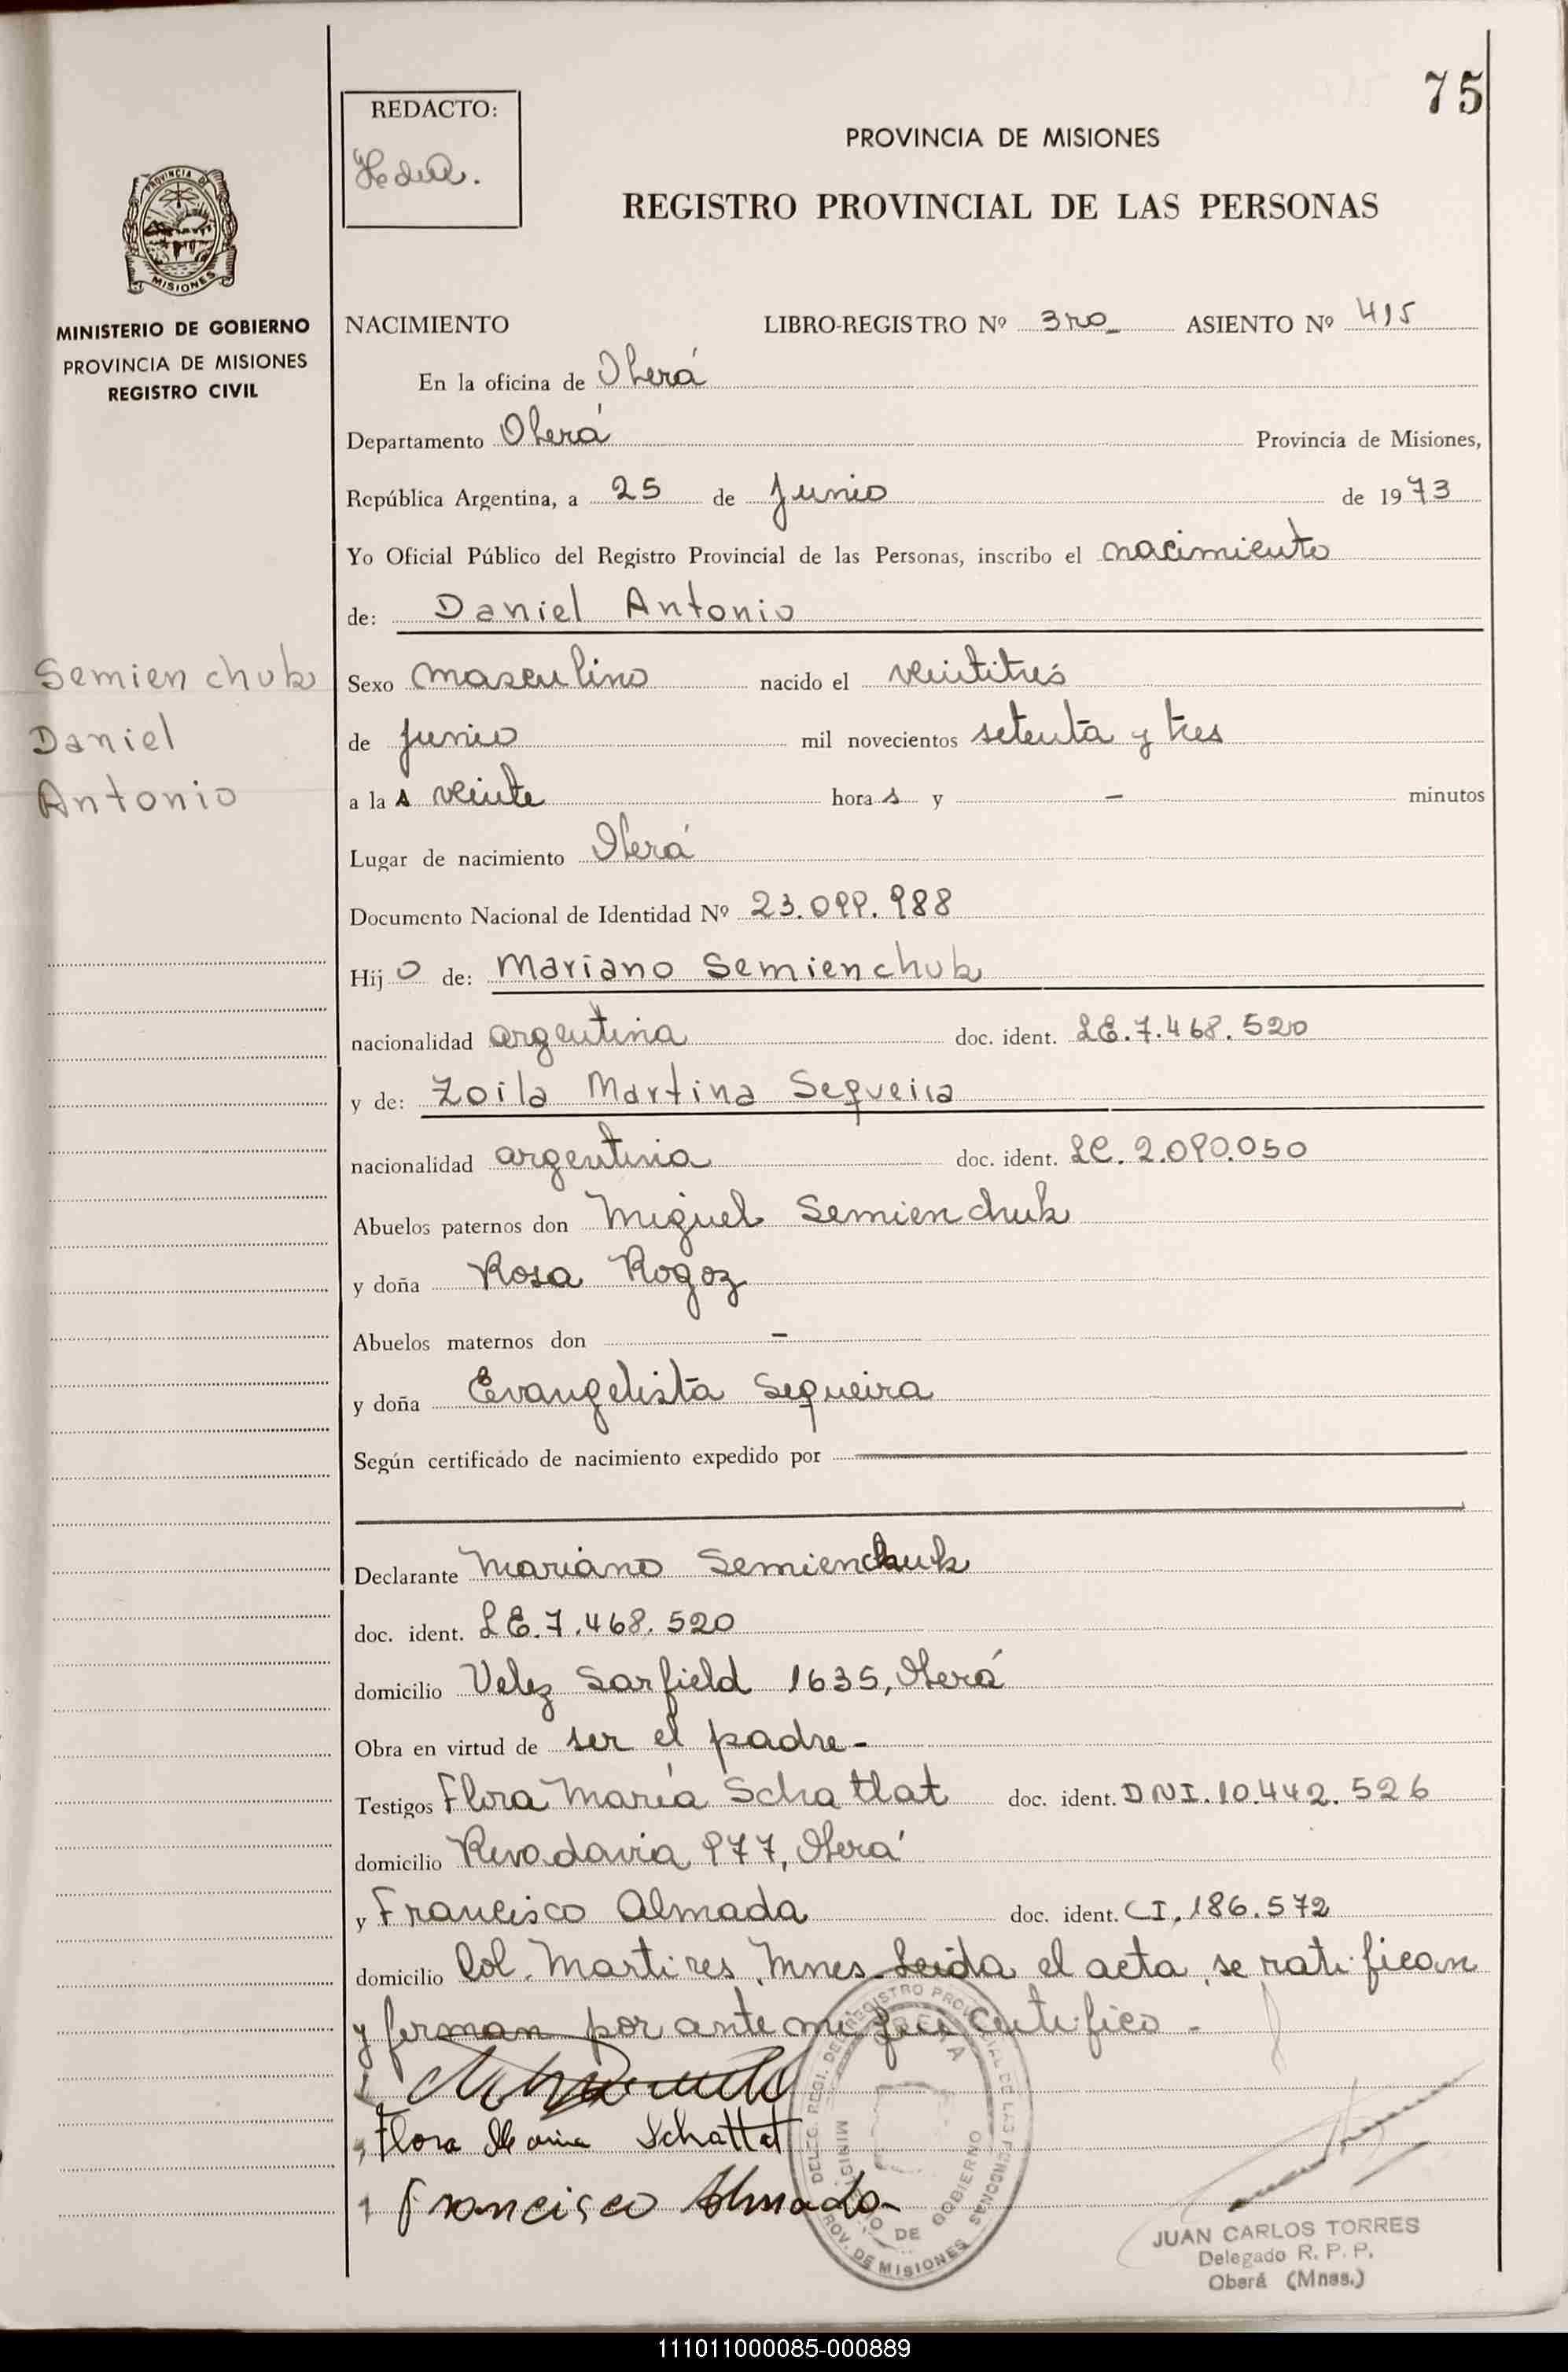 75
REDACTO:
PROVINCIA DE MISIONES
REGISTRO PROVINCIAL DE LAS PERSONAS
PROVINCIA DE
MISIONES
MINISTERIO DE GOBIERNO
PROVINCIA DE MISIONES
REGISTRO CIVIL
NACIMIENTO LIBRO-REGISTRO Nº 3ro ASIENTO Nº 415
En la oficina de Oberá
Departamento Oberá Provincia de Misiones,
República Argentina, a 25 de Junio de 1973
Yo Oficial Público del Registro Provincial de las Personas, inscribo el nacimiento
de: Daniel Antonio
Semienchuk
Daniel
Antonio
Sexo masculino nacido el veintitrés
de junio mil novecientos setenta y tres
a la s veinte hora s y - minutos
Lugar de nacimiento Oberá
Documento Nacional de Identidad Nº 23.099.988
Hij o de: Mariano Semienchuk
nacionalidad argentina doc. ident. LE.7.468.520
y de: Zoila Martina Sequeira
nacionalidad argentina doc. ident. LC. 2.090.050
Abuelos paternos don Miguel Semienchuk
y doña Rosa Rogoz
Abuelos maternos don -
y doña Evangelista Sequeira
Según certificado de nacimiento expedido por
Declarante Mariano Semienchuk
doc. ident. LE.7.468.520
domicilio Velez Sarfield 1635, Oberá
Obra en virtud de ser el padre-
Testigos Flora María Schattat doc. ident. DNI.10.442.526
domicilio Rivadavia 977, Oberá
y Francisco Almada doc. ident. CI.186.572
domicilio Col. Martires, Mnes. Leida el acta, se ratifican
y firman por ante mi que certifico -
Flora Maria Schattat
Francisco Almada
DELEG. REGI. DEL REGISTRO PROVINCIAL DE LAS PERSONAS
OBERA
MINISTERIO DE GOBIERNO
PROV. DE MISIONES
JUAN CARLOS TORRES
Delegado R. P. P.
Oberá (Mnes.)
111011000085-000889